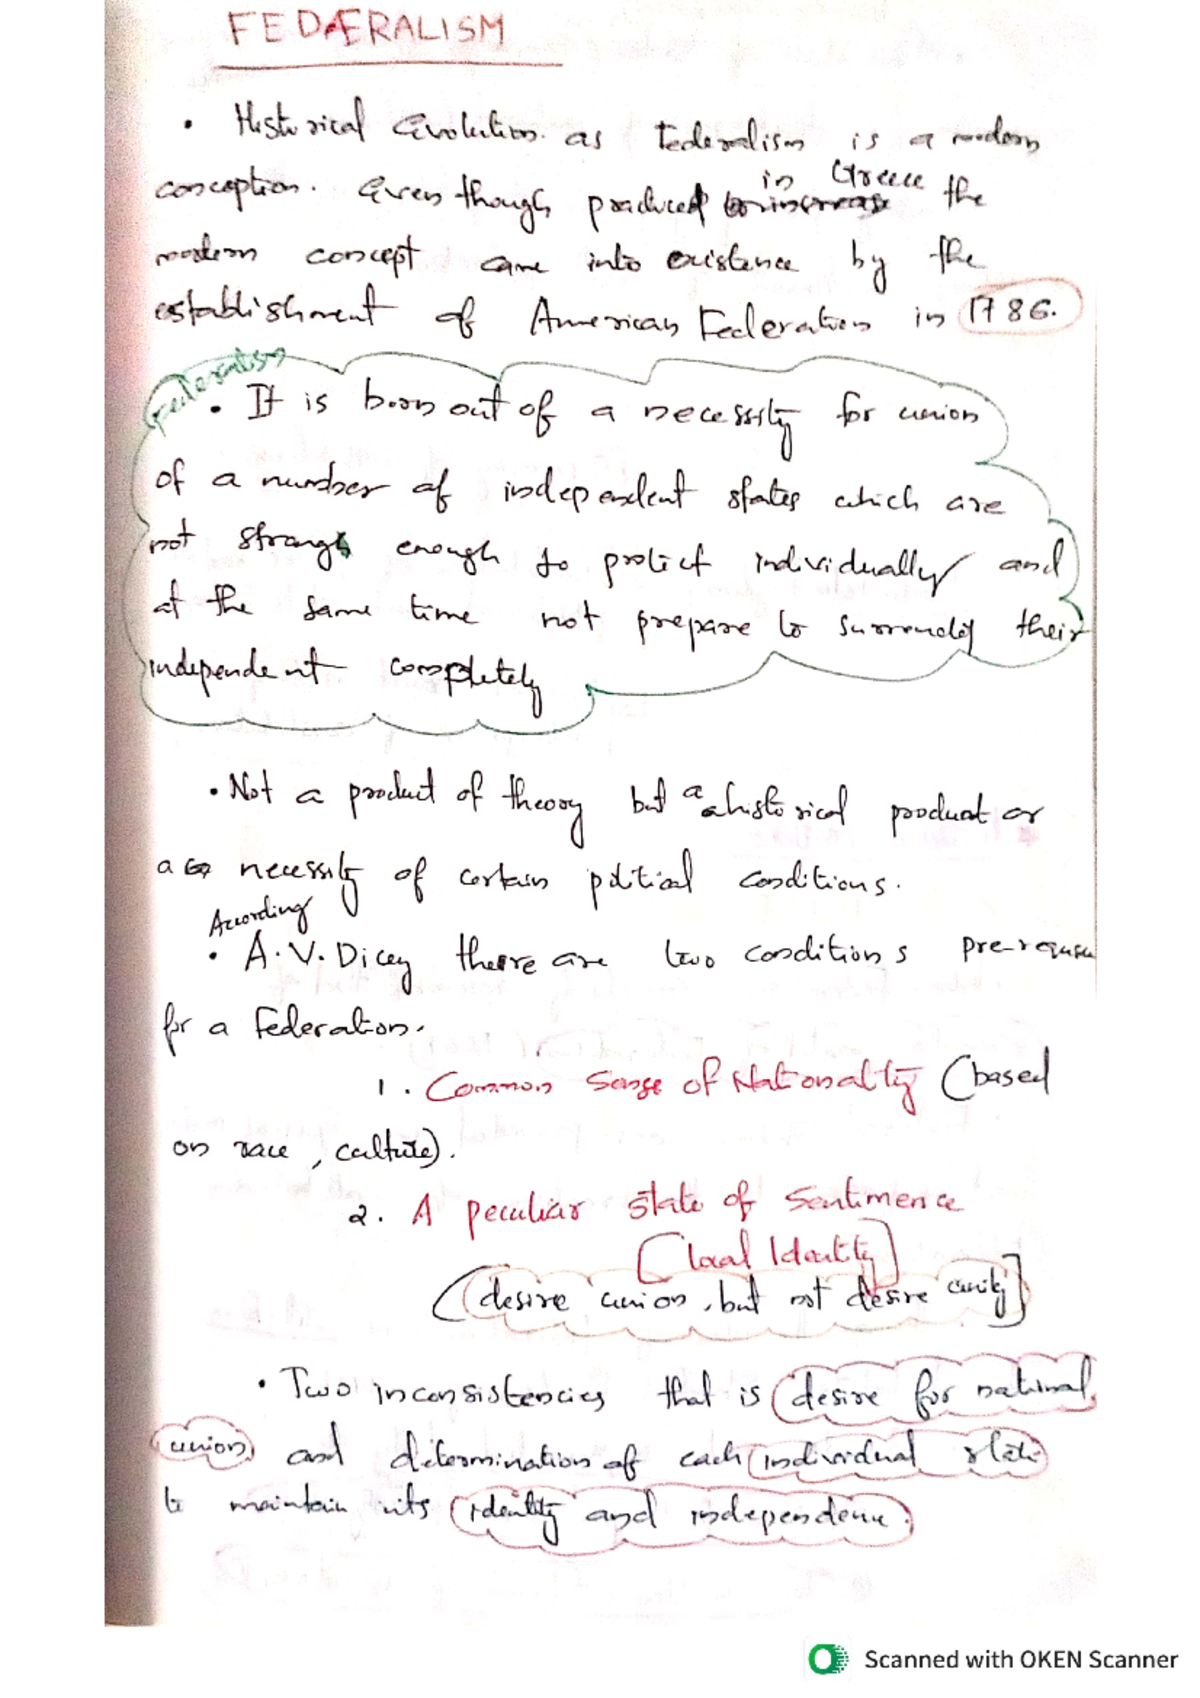 FEDÆRALISM
• Historical Evolution. as Federalism is a modern
in Greece
conception. Even though produced the
modern concept came into existence by the
establishment of American Federation in 1786.
Federalism
• It is born out of a necessity for union
of a number of independent states which are
not strong enough to protect individually and
at the same time not prepare to their
independent completely
• Not a product of theory but a a historical product or
a necessity of certain political conditions.
According
• A.V. Dicey there are two conditions
for a Federation.
1. Common Sense of Nationality (based
on race, culture).
2. A peculiar state of Sentimence
[local Identity]
(desire union, but not desire unity]
• Two inconsistencies that is desire for national
union and determination of each individual state
to maintain its identity and independence.
Scanned with OKEN Scanner